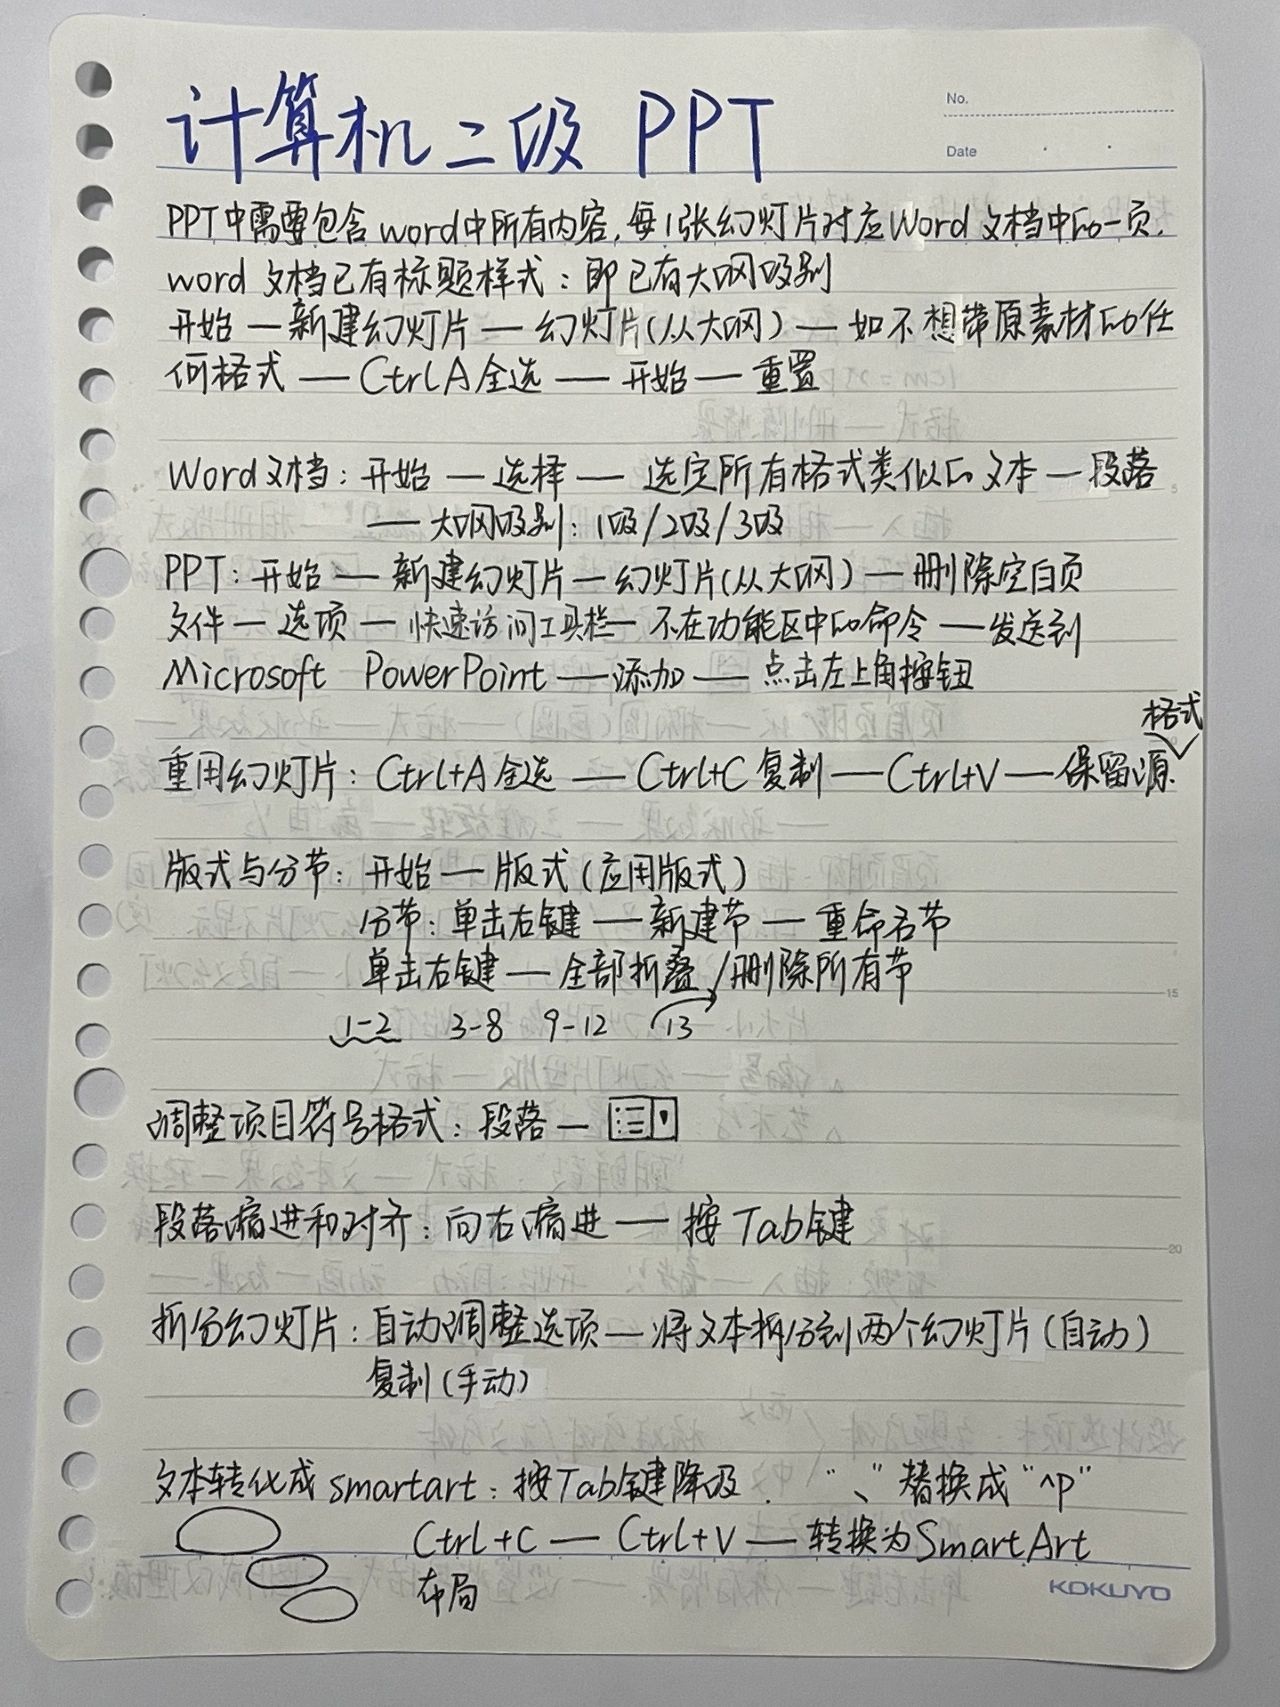 计算机二级 PPT
No.
Date
PPT中需要包含word中所有内容,每1张幻灯片对应Word文档中的一页.
word文档已有标题样式:即已有大纲级别
开始—新建幻灯片—幻灯片(从大纲)—如不想带原素材的任
何格式—Ctrl A全选—开始—重置
Word文档:开始—选择—选定所有格式类似的文本—段落
—大纲级别:1级/2级/3级
PPT:开始—新建幻灯片—幻灯片(从大纲)—删除空白页
文件—选项—快速访问工具栏—不在功能区中的命令—发送到
Microsoft PowerPoint—添加—点击左上角按钮
重用幻灯片:Ctrl+A全选—Ctrl+C复制—Ctrl+V—保留源格式
版式与分节:开始—版式(应用版式)
分节:单击右键—新建节—重命名节
单击右键—全部折叠/删除所有节
1-2 3-8 9-12 13
调整项目符号格式:段落—
段落缩进和对齐:向右缩进—按Tab键
拆分幻灯片:自动调整选项—将文本拆分到两个幻灯片(自动)
复制(手动)
文本转化成smartart:按Tab键降级. "、"替换成"^p"
Ctrl+C—Ctrl+V—转换为SmartArt
布局
5
15
20
KOKUYO